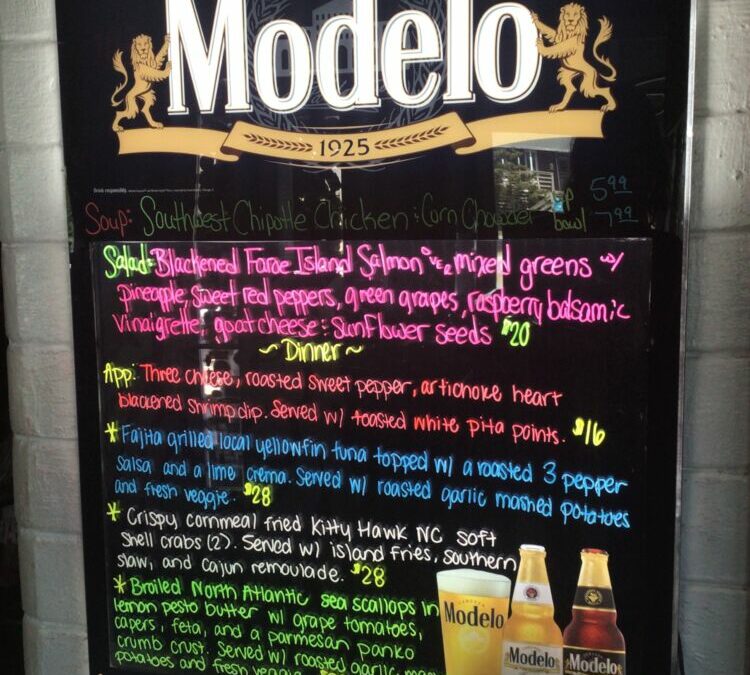 Modelo
1925
Drink responsibly.
Soup: Southwest Chipotle Chicken & Corn Chowder cup 5.99
bowl 7.99
Salad: Blackened Faroe Island Salmon over mixed greens w/
pineapple, sweet red peppers, green grapes, raspberry balsamic
vinaigrette, goat cheese & sunflower seeds $20
~ Dinner ~
App: Three cheese, roasted sweet pepper, artichoke heart
blackened shrimp dip. Served w/ toasted white pita points. $16
* Fajita grilled local yellowfin tuna topped w/ a roasted 3 pepper
salsa and a lime crema. Served w/ roasted garlic mashed potatoes
and fresh veggie. $28
* Crispy cornmeal fried Kitty Hawk NC soft
shell crabs (2). Served w/ island fries, southern
slaw, and cajun remoulade. $28
* Broiled North Atlantic sea scallops in
lemon pesto butter w/ grape tomatoes,
capers, feta, and a parmesan panko
crumb crust. Served w/ roasted garlic
potatoes and fresh veggie
Modelo
Modelo
Modelo